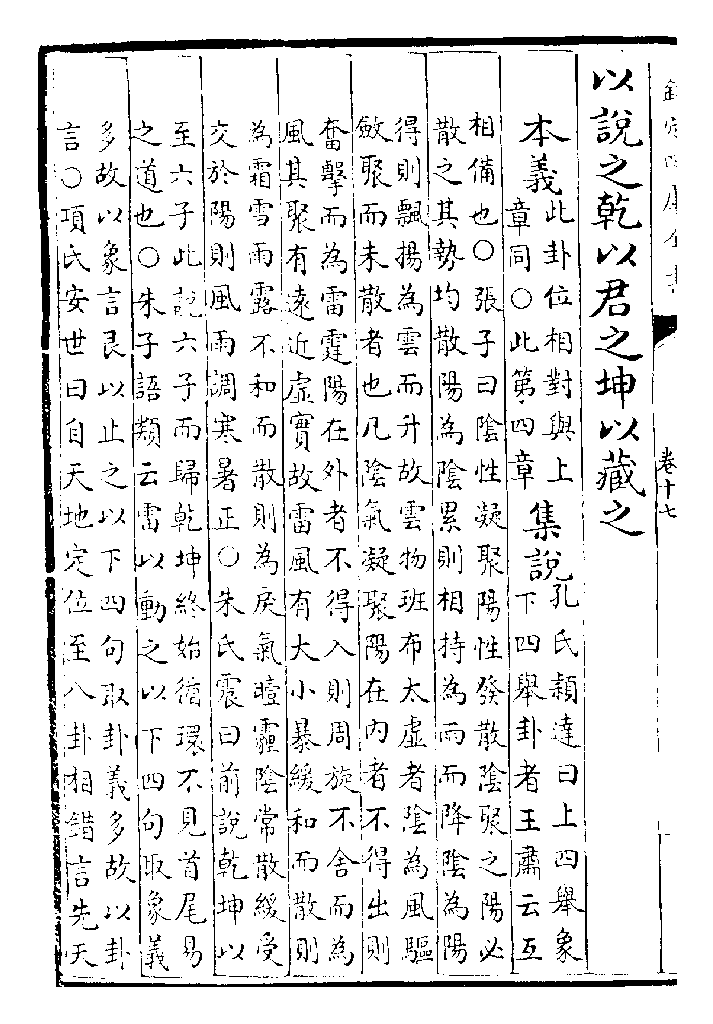 欽定四庫全書
卷十七
以說之乾以君之坤以藏之
本義
此卦位相對與上
章同○此第四章
集說
孔氏穎達曰上四舉象
下四舉卦者王肅云互
相備也○張子曰陰性凝聚陽性發散陰聚之陽必
散之其勢均散陽為陰累則相持為雨而降陰為陽
得則飄揚為雲而升故雲物班布太虛者陰為風驅
斂聚而未散者也凡陰氣凝聚陽在内者不得出則
奮擊而為雷霆陽在外者不得入則周旋不舍而為
風其聚有遠近虛實故雷風有大小暴緩和而散則
為霜雪雨露不和而散則為戾氣曀霾陰常散緩受
交於陽則風雨調寒暑正○朱氏震曰前說乾坤以
至六子此説六子而歸乾坤終始循環不見首尾易
之道也○朱子語類云雷以動之以下四句取象義
多故以象言艮以止之以下四句取卦義多故以卦
言○項氏安世曰自天地定位至八卦相錯言先天